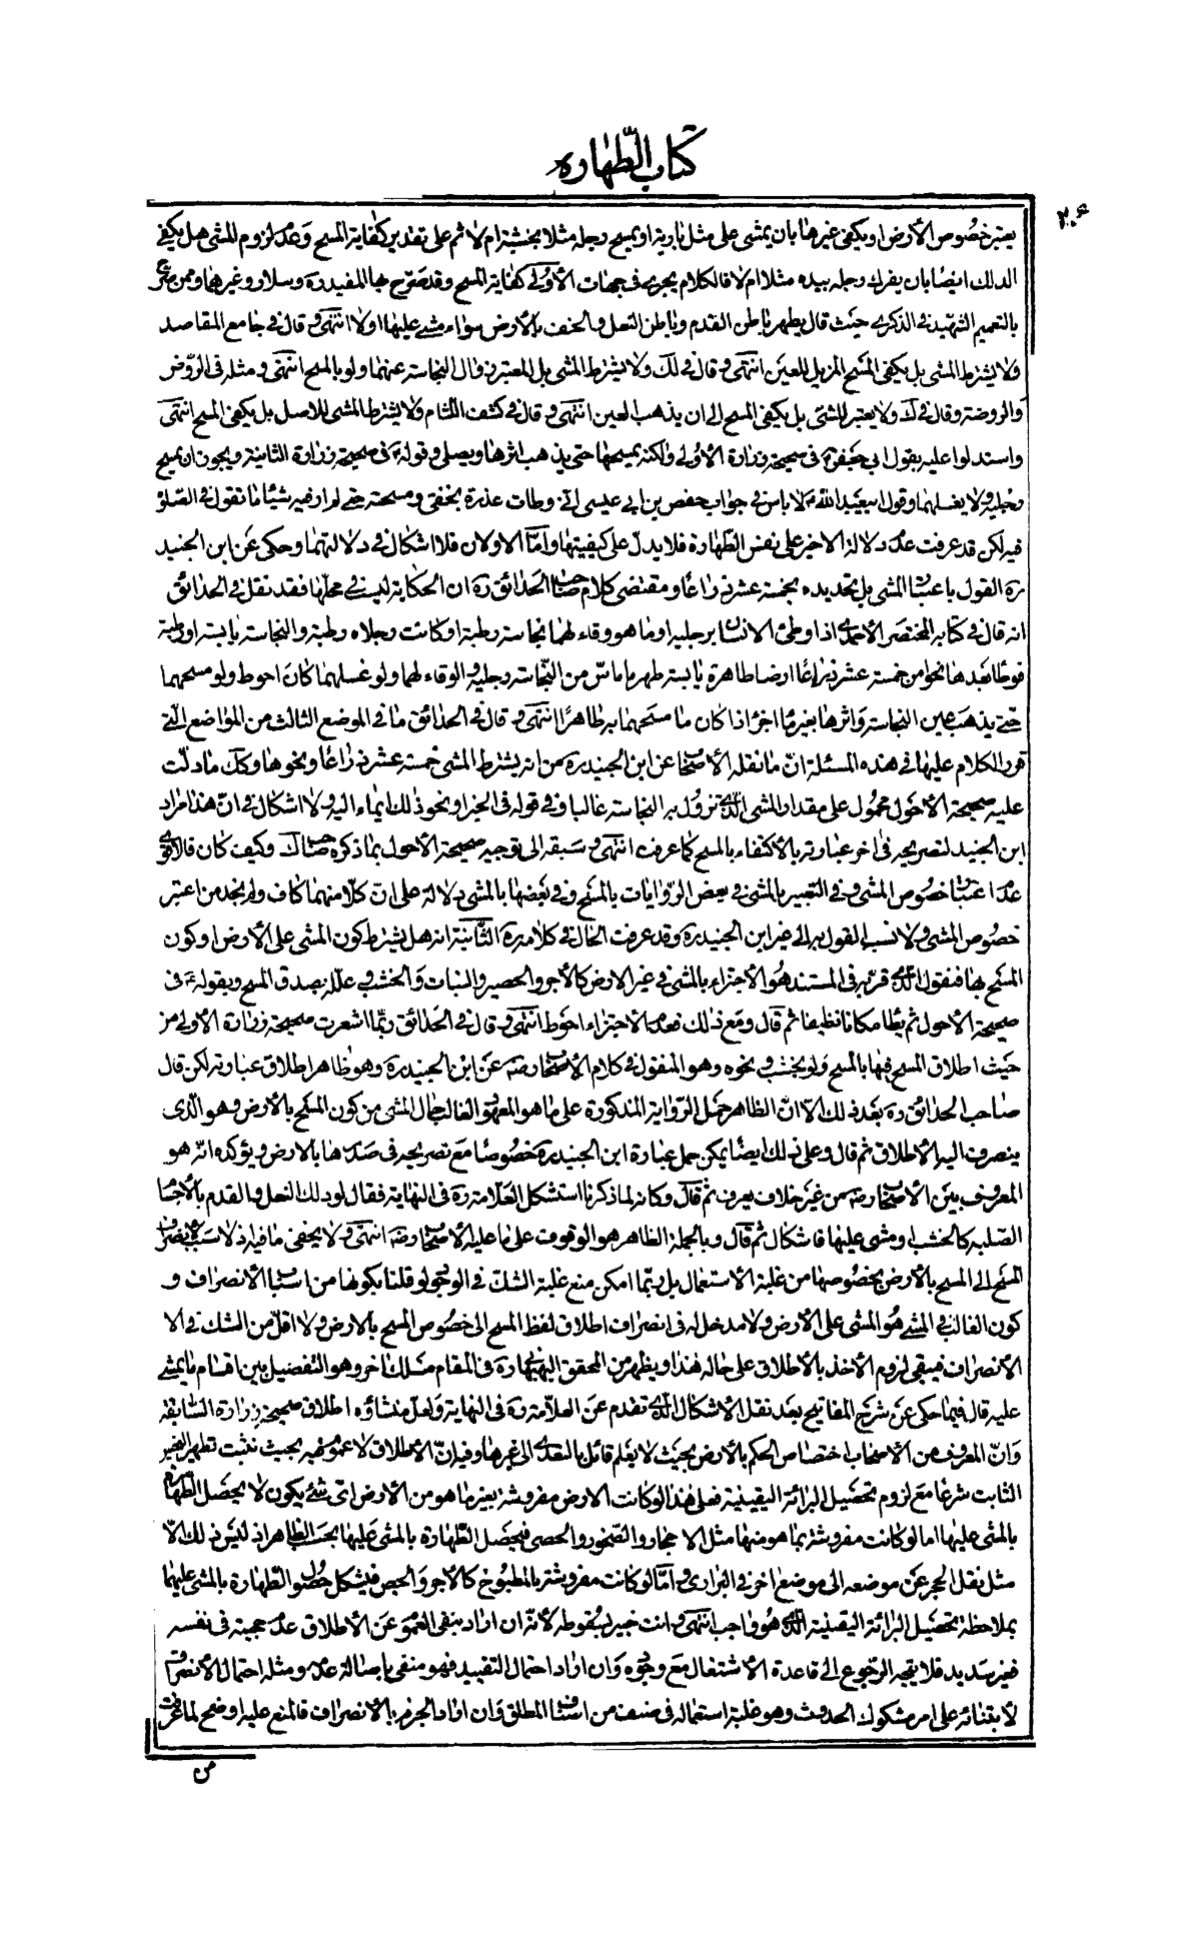 كتاب الطهارة
٢٠٤
يعتبر خصوص الأرض او يكفى غيرها بان يمشى على مثل بارية او يمسح رجله مثلا بخشبة ام لا ثم على تقدير كفاية المسح وعدم لزوم المشى هل يكفى
الدلك ايضا بان يفرك رجله بيده مثلا ام لا فالكلام يجرى فى جهات الأولى كفاية المسح وقد صرّح بها المفيد ره وسلار وغيرهما وممن صرّح
بالتعميم الشهيد فى الذكرى حيث قال يطهر باطن القدم وباطن النعل والخف بالأرض سواء مشى عليها اولا انتهى وقال فى جامع المقاصد
ولا يشترط المشى بل يكفى المسح المزيل للعين انتهى وقال فى لك ولا يشترط المشى بل المعتبر زوال النجاسة عنهما ولو بالمسح انتهى ومثله فى الروض
والروضة وقال فى ك ولا يعتبر المشى بل يكفى المسح الى ان يذهب العين انتهى وقال فى كشف اللثام ولا يشترط المشى للاصل بل يكفى المسح انتهى
واستدلوا عليه بقول ابى جعفر ع فى صحيحة زرارة الأولى ولكنه يمسحها حتى يذهب اثرها ويصلى وقوله ع فى صحيحة زرارة الثانية ويجوز ان يمسح
رجليه ولا يغسلهما وقول ابيعبد الله ع لا باس فى جواب حفص بن ابى عيسى انى وطات عذرة بخفى ومسحته حتى لم ار فيه شيئا ما تقول فى الصلوة
فيه لكن قد عرفت عدم دلالة الاخير على نفس الطهارة فلا يدل على كيفيتها وامّا الاولان فلا اشكال فى دلالتهما وحكى عن ابن الجنيد
ره القول باعتبار المشى بل تحديده بخمسة عشر ذراعا ومقتضى كلام صاحب الحدائق ره ان الحكاية ليست فى محلها فقد نقل فى الحدائق
انه قال فى كتابه المختصر الأحمدى اذا وطئ الانسان برجليه او ما هو وقاء لهما نجاسة رطبة او كانت رجلاه رطبة والنجاسة يابسة او رطبة
فوطأ بعدها نحوا من خمسة عشر ذراعًا ارضا طاهرة يابسة طهر ما ماسّ من النجاسة رجليه والوقاء لهما ولو غسلهما كان احوط ولو مسحهما
حتى يذهب عين النجاسة واثرها بغير ماء اجزأ اذا كان ما مسحهما به طاهرًا انتهى وقال فى الحدائق ما فى الموضع الثالث من المواضع التى
قرر الكلام عليها فى هذه المسئلة انّ ما نقله الأصحاب عن ابن الجنيد ره من انه يشترط المشى خمسة عشر ذراعًا ونحوها وكك ما دلت
عليه صحيحة الأحول محمول على مقدار المشى الذى تزول به النجاسة غالبا وفى قوله فى الخبر او نحو ذلك ايماء اليه ولا اشكال فى انّ هذا مراد
ابن الجنيد لتصريحه فى اخر عبارته بالأكتفاء بالمسح كما عرفت انتهى وسبقه الى توجيه صحيحة الأحول بما ذكره صاحب ك وكيف كان فالأقوى
عدم اعتبار خصوص المشى وفى التعبير بالمشى فى بعض الروايات بالمسح وفى بعضها بالمشى دلالة على ان كلا منهما كاف ولم نجد من اعتبر
خصوص المشى ولا نسب القول به الى غير ابن الجنيد ره وقد عرفت الحال فى كلامه ره الثانية انه هل يشترط كون المشى على الأرض او كون
المسح بها فنقول الذى قربه فى المستند هو الأجتزاء بالمشى فى غير الارض كالآجر والحصير والنبات والخشب وعلله بصدق المسح وبقوله ع فى
صحيحة الأحول ثم يطأ مكانا نظيفا ثم قال ومع ذلك فعدم الأجتزاء احوط انتهى وقال فى الحدائق ربّما اشعرت صحيحة زرارة الأولى من
حيث اطلاق المسح فيها بالمسح ولو بخشب ونحوه وهو المنقول فى كلام الأصحاب رضه عن ابن الجنيد ره وهو ظاهر اطلاق عبارته لكن قال
صاحب الحدائق ره بعد ذلك الّا انّ الظاهر حمل الرواية المذكورة على ما هو المعهود الغالب حال المشى من كون المسح بالأرض وهو الّذى
ينصرف اليه الأطلاق ثم قال وعلى ذلك ايضًا يمكن حمل عبارة ابن الجنيد ره خصوصًا مع تصريحه فى صدرها بالارض ويؤكده انّه هو
المعروف بين الاصحاب رضه من غير خلاف يعرف ثم قال وكانه لما ذكرنا استشكل العلامة ره فى النهاية فقال لو دلك النعل والقدم بالأجسام
الصلبة كالخشب او مشى عليها فاشكال ثم قال وبالجملة الظاهر هو الوقوف على ما عليه الأصحاب رضه انتهى ولا يخفى ما فيه اذ لا سبب لانصراف
المسح الى المسح بالأرض بخصوصها من غلبة الأستعمال بل ربّما امكن منع غلبة الشك فى الوجود لو قلنا بكونها من اسباب الأنصراف و
كون الغالب فى المشى هو المشى على الأرض ولا مدخل له فى انصراف اطلاق لفظ المسح الى خصوص المسح بالارض ولا اقلّ من الشك فى الا
الأنصراف فيبقى لزوم الأخذ بالأطلاق على حاله هذا ويظهر من المحقق البهبهانى ره فى المقام مسلك اخر وهو التفصيل بين اقسام ما يمشى
عليه قال فيما حكى عن شرح المفاتيح بعد نقل الأشكال الذى تقدم عن العلامة ره فى النهاية ولعل منشاؤه اطلاق صحيحة زرارة السّابقة
وانّ المعروف من الأصحاب اختصاص الحكم بالأرض بحيث لا يعلم قائل بالتعدى الى غيرها وفيه انّ الأطلاق لا عموم فيه بحيث نثبت تطهير الغير
الثابت شرعًا مع لزوم تحصيل البرائة اليقينية فعلى هذا لو كانت الارض مفروشة بغير ما هو من الأرض اى شىء يكون لا يحصل الطهارة
بالمشى عليها اما لو كانت مفروشة بما هو منها مثل الاحجار والصّخور والحصى فيحصل الطّهارة بالمشى عليها بحسب الظاهر اذ ليس ذلك الّا
مثل نقل الحجر عن موضعه الى موضع اخر فى البرارى وامّا لو كانت مفروشة بالمطبوخ كالآجر والجص فيشكل حصول الطّهارة بالمشى عليهما
بملاحظة تحصيل البرائة اليقينية الذى هو واجب انتهى وانت خبير بسقوطه لأنّه ان اراد بنفى العموم عن الأطلاق عدم حجيته فى نفسه
فغير سديد فلا يتجه الرجوع الى قاعدة الأشتغال مع وجوده وان اراد احتمال التقييد فهو منفى باصالة عدمه ومثله احتمال الأنصراف
لأبتنائه على امر مشكوك الحدوث وهو غلبة استعماله فى صنف من اصناف المطلق وان اراد الجزم بالأنصراف فالمنع عليه اوضح لما عرفت
من